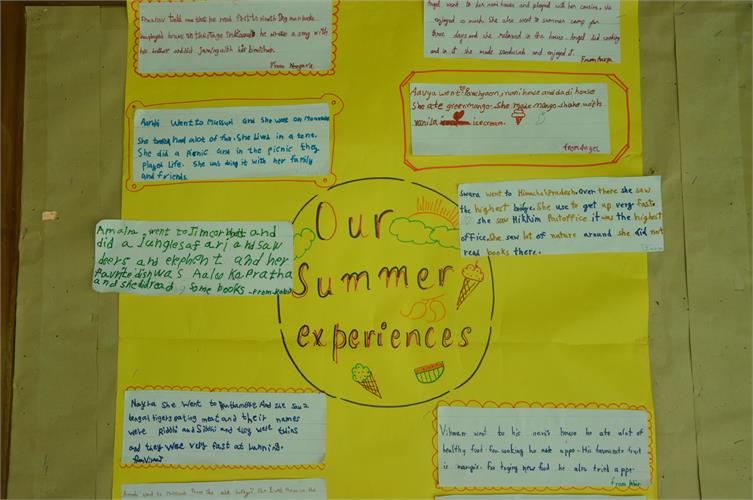 told me that he read
he wrote a song with
his father and did jaming with his brother.
From
Angel went to her nani house and played with her cousins. she
enjoyed so much. She also went to summer camp for
three days and she relaxed in the house. Angel did cooking
and in it she made sandwich and enjoyed it.
From
Aarohi Went to Mussuri and She went on Mountains
She had alot of fun. She Lived in a tent.
She did a Picnic and in the picnic they
played Life. She was ding it with her family
and friends.
Aavya went to Panchgaon, nani house and dadi house
She ate green mango. She made mango shake with
vanila icecream.
from Angel
Swara went to Himachal Pradesh. Over there she saw
the highest bridge. She use to get up very fast.
she saw Hikkim Postoffice it was the highest
office. She saw lot of nature around she did not
read books there.
Amaira went to Jimcor and
did a Junglesafari and saw
deers and elephant and her
favrite dish was Aaloo ka Pratha
and she did read some books -From-Kabir
Our
Summer
experiences
Nayra She Went to Ranthambore And she saw 2
bengal tigers eating meat and their names
were Riddhi and Siddhi and they were twins
and they were very fast at running.
Vihaan went to his nani's house he ate alot of
healthy food. For cooking he made appo. His favourite fruit
is mango. For trying new food he also tried appe.
from